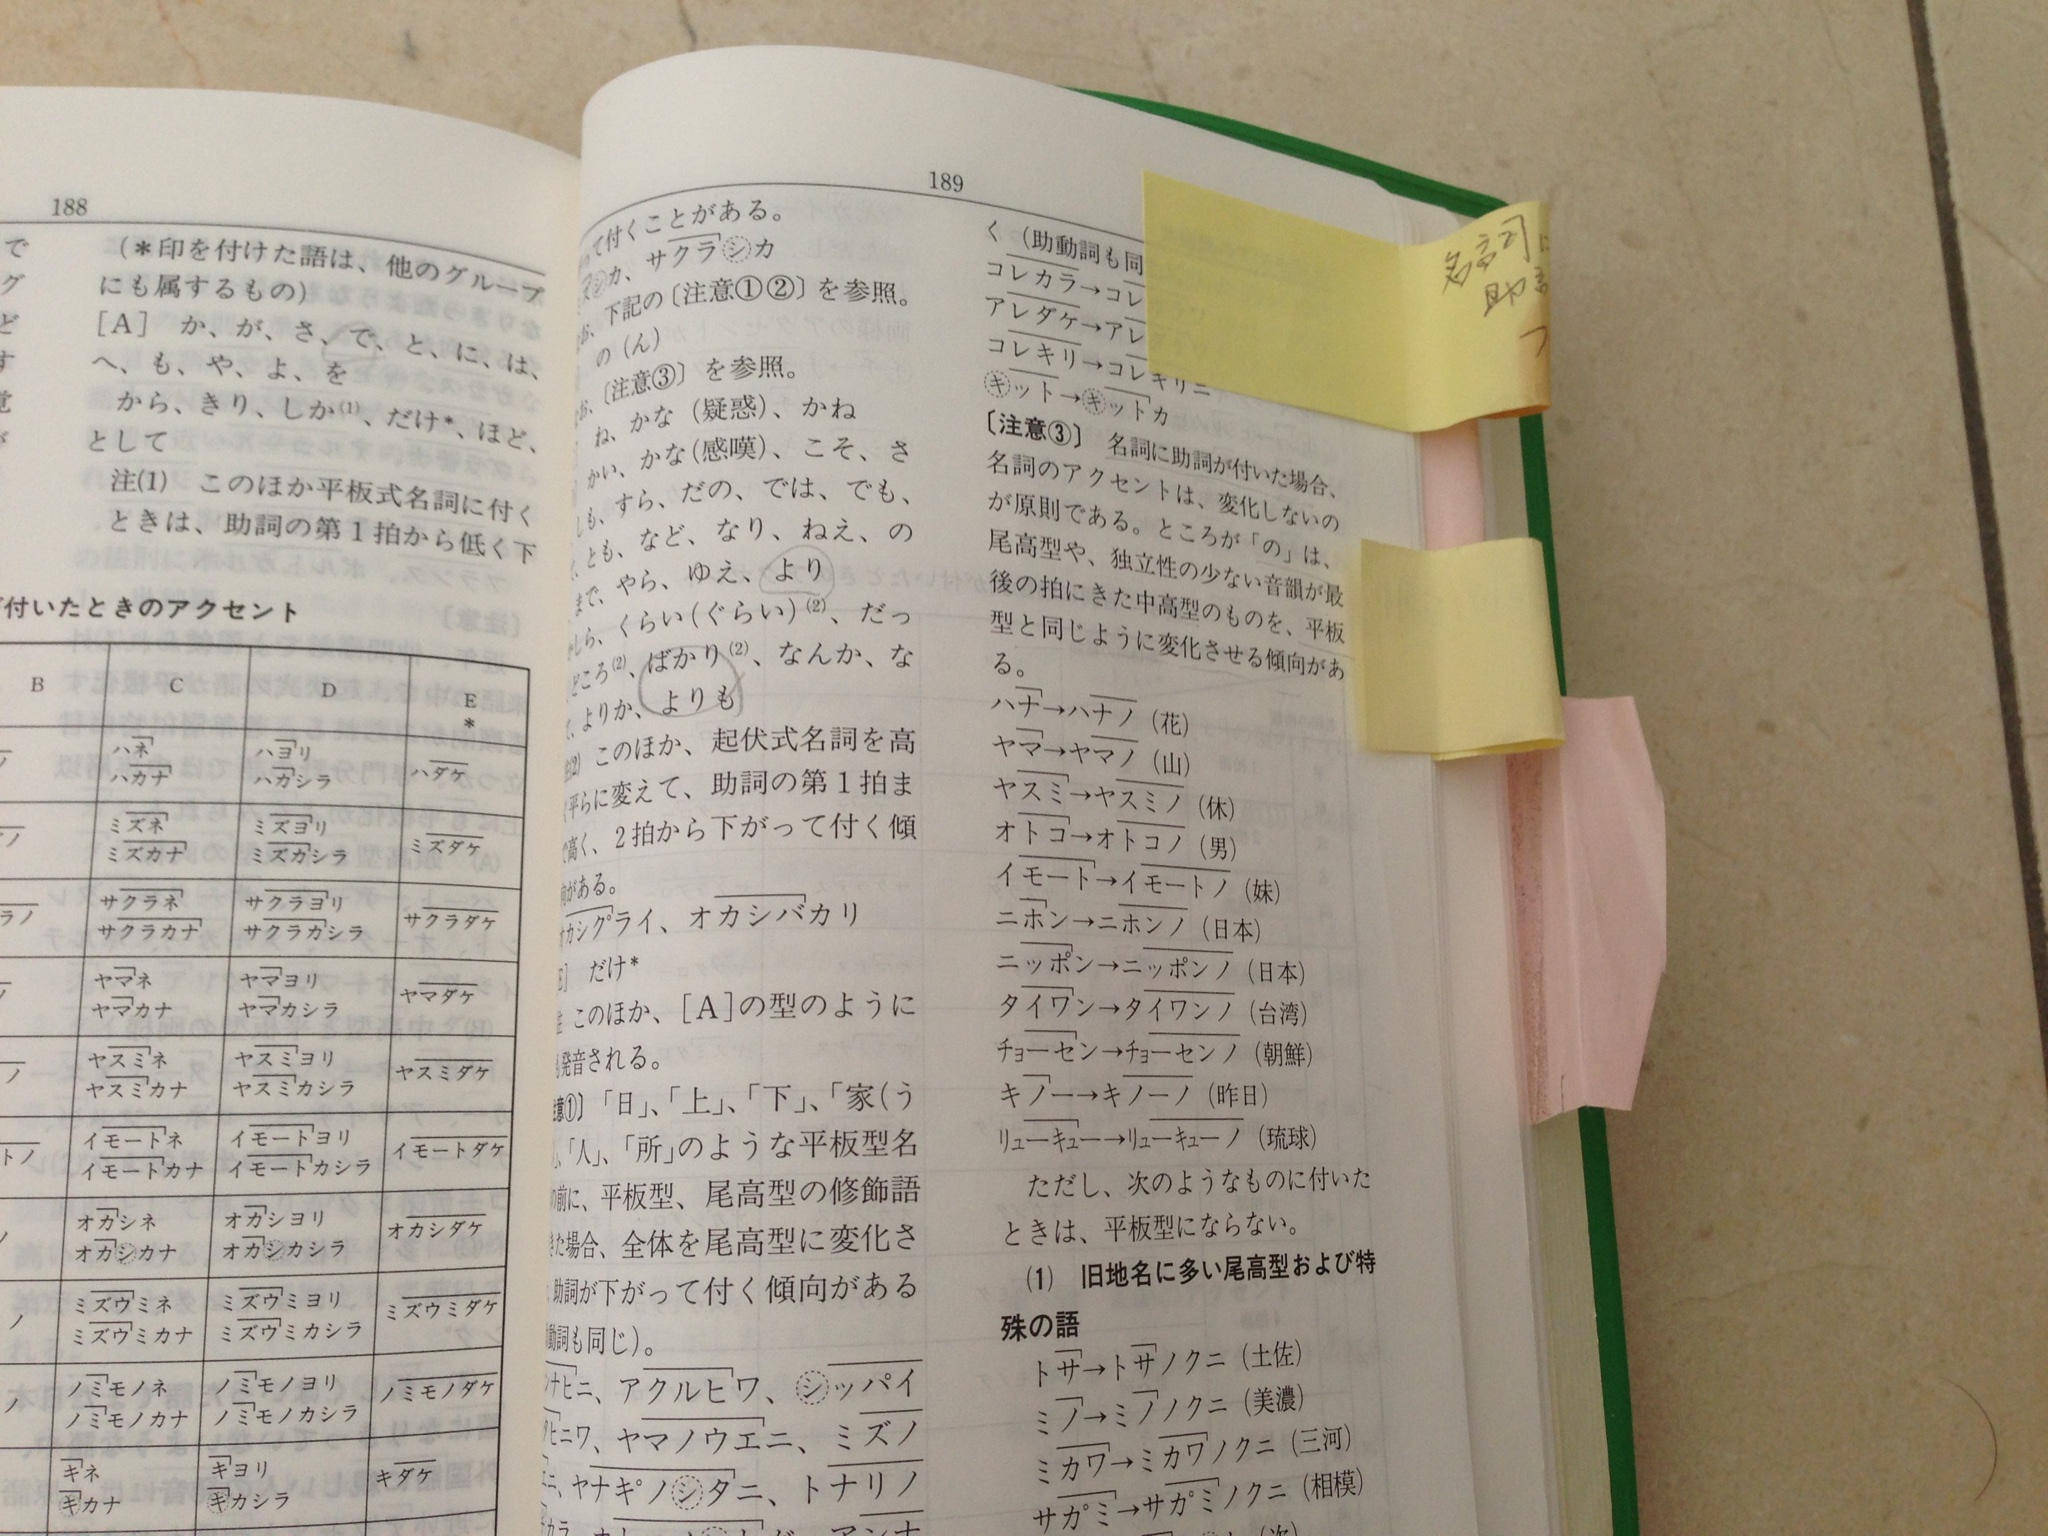 188
(＊印を付けた語は、他のグループ
にも属するもの)
[A] か、が、さ、で、と、に、は、
へ、も、や、よ、を
から、きり、しか(1)、だけ*、ほど、
として
注(1) このほか平板式名詞に付く
ときは、助詞の第1拍から低く下
付いたときのアクセント
B C D E
*
ハネ ハヨリ ハダケ
ハカナ ハカシラ
ミズネ ミズヨリ ミズダケ
ミズカナ ミズカシラ
サクラネ サクラヨリ サクラダケ
サクラカナ サクラカシラ
ヤマネ ヤマヨリ ヤマダケ
ヤマカナ ヤマカシラ
ヤスミネ ヤスミヨリ ヤスミダケ
ヤスミカナ ヤスミカシラ
イモートネ イモートヨリ イモートダケ
イモートカナ イモートカシラ
オカシネ オカシヨリ オカシダケ
オカシカナ オカシカシラ
ミズウミネ ミズウミヨリ ミズウミダケ
ミズウミカナ ミズウミカシラ
ノミモノネ ノミモノヨリ ノミモノダケ
ノミモノカナ ノミモノカシラ
キネ キヨリ キダケ
キカナ キカシラ
189
て付くことがある。
サクラシカ
下記の〔注意①②〕を参照。
の(ん)
〔注意③〕を参照。
ね、かな(疑惑)、かね
かい、かな(感嘆)、こそ、さ
も、すら、だの、では、でも、
とも、など、なり、ねえ、の
まで、やら、ゆえ、より
しら、くらい(ぐらい)(2)、だっ
どころ(2)、ばかり(2)、なんか、な
よりか、よりも
(2) このほか、起伏式名詞を高
平らに変えて、助詞の第1拍ま
で高く、2拍から下がって付く傾
向がある。
オカシグライ、オカシバカリ
だけ*
このほか、[A]の型のように
発音される。
「日」、「上」、「下」、「家(う
「人」、「所」のような平板型名
の前に、平板型、尾高型の修飾語
きた場合、全体を尾高型に変化さ
助詞が下がって付く傾向がある
動詞も同じ)。
ナヒニ、アクルヒワ、シッパイ
ヒニワ、ヤマノウエニ、ミズノ
ニ、ヤナギノシタニ、トナリノ
く(助動詞も同
コレカラ→コレ
アレダケ→アレ
コレキリ→コレキリニ
キット→キットカ
〔注意③〕 名詞に助詞が付いた場合、
名詞のアクセントは、変化しないの
が原則である。ところが「の」は、
尾高型や、独立性の少ない音韻が最
後の拍にきた中高型のものを、平板
型と同じように変化させる傾向があ
る。
ハナ→ハナノ(花)
ヤマ→ヤマノ(山)
ヤスミ→ヤスミノ(休)
オトコ→オトコノ(男)
イモート→イモートノ(妹)
ニホン→ニホンノ(日本)
ニッポン→ニッポンノ(日本)
タイワン→タイワンノ(台湾)
チョーセン→チョーセンノ(朝鮮)
キノー→キノーノ(昨日)
リューキュー→リューキューノ(琉球)
ただし、次のようなものに付いた
ときは、平板型にならない。
(1) 旧地名に多い尾高型および特
殊の語
トサ→トサノクニ(土佐)
ミノ→ミノノクニ(美濃)
ミカワ→ミカワノクニ(三河)
サガミ→サガミノクニ(相模)
名詞に
助
つ